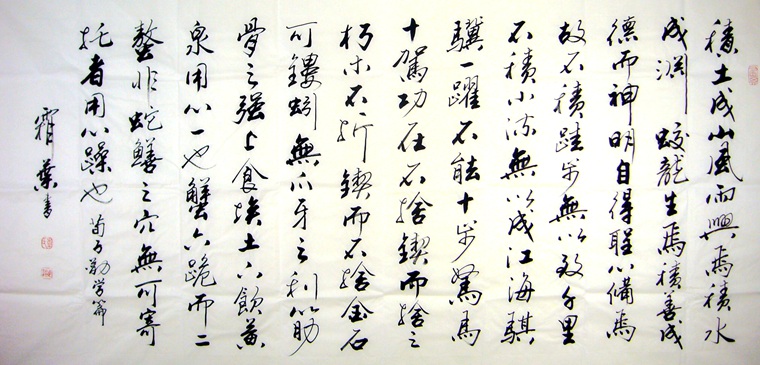 積土成山風雨興焉積水
成渊蛟龍生焉積善成
德而神明自得聖心備焉
故不積跬步無以致千里
不積小流無以成江海騏
驥一躍不能十步駑馬
十駕功在不捨鍥而捨之
朽木不折鍥而不捨金石
可鏤蚓無爪牙之利筋
骨之强上食埃土下飲黄
泉用心一也蟹六跪而二
螯非蛇鱔之穴無可寄
托者用心躁也 荀子勸学篇
霜葉書